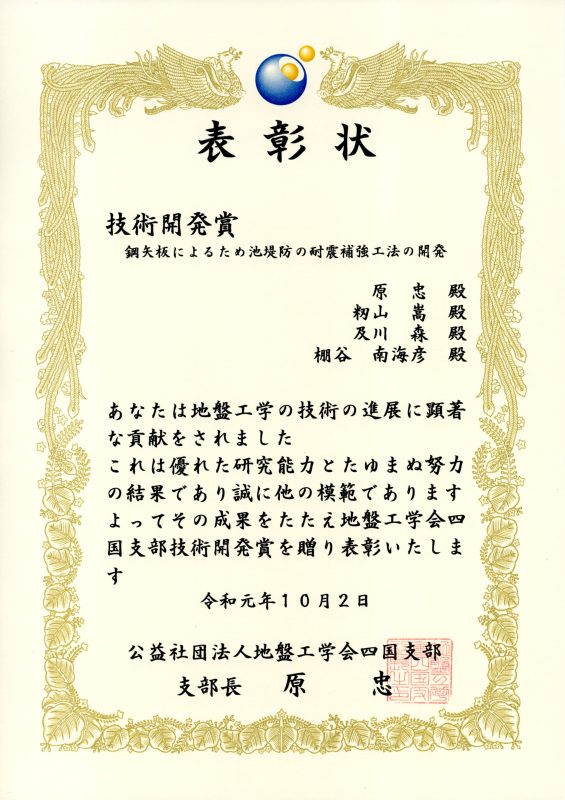 表彰状
技術開発賞
鋼矢板によるため池堤防の耐震補強工法の開発
原 忠 殿
籾山 嵩 殿
及川 森 殿
棚谷 南海彦 殿
あなたは地盤工学の技術の進展に顕著
な貢献をされました
これは優れた研究能力とたゆまぬ努力
の結果であり誠に他の模範であります
よってその成果をたたえ地盤工学会四
国支部技術開発賞を贈り表彰いたしま
す
令和元年10月2日
公益社団法人地盤工学会四国支部
支部長 原 忠